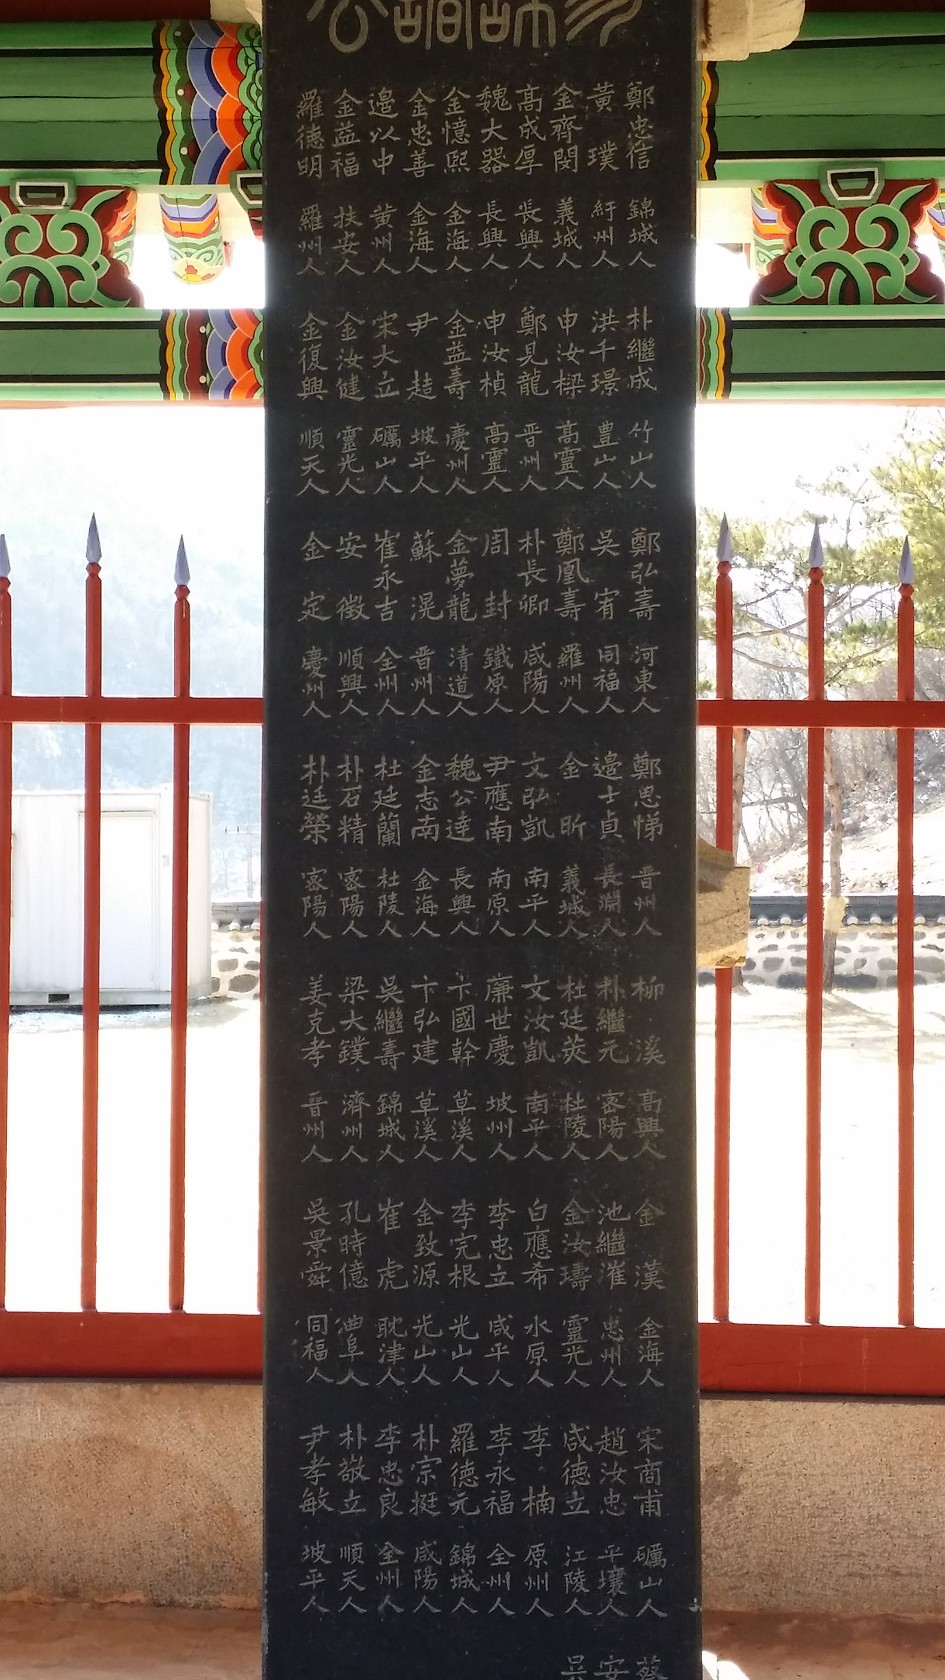 鄭忠信 錦城人
黃璞 紆州人
金齊閔 義城人
高成厚 長興人
魏大器 長興人
金憶熙 金海人
金忠善 金海人
邊以中 黃州人
金益福 扶安人
羅德明 羅州人
朴繼成 竹山人
洪千璟 豊山人
申汝樑 高靈人
鄭見龍 晋州人
申汝楨 高靈人
金益壽 慶州人
尹趌 坡平人
宋大立 礪山人
金汝健 靈光人
金復興 順天人
鄭弘壽 河東人
吳宥 同福人
鄭凰壽 羅州人
朴長卿 咸陽人
周封 鐵原人
金夢龍 清道人
蘇滉 晋州人
崔永吉 全州人
安徵 順興人
金定 慶州人
鄭思悌 晋州人
邊士貞 長淵人
金昕 義城人
文弘凱 南平人
尹應南 南原人
魏公達 長興人
金志南 金海人
杜廷蘭 杜陵人
朴石精 密陽人
朴廷榮 密陽人
柳溪 高興人
朴繼元 密陽人
杜廷莢 杜陵人
文汝凱 南平人
廉世慶 坡州人
卞國幹 草溪人
卞弘建 草溪人
吳繼壽 錦城人
梁大鏷 濟州人
姜克孝 晋州人
金漢 金海人
池繼漼 忠州人
金汝璹 靈光人
白應希 水原人
李忠立 咸平人
李完根 光山人
金致源 光山人
崔虎 耽津人
孔時億 曲阜人
吳景舜 同福人
宋商甫 礪山人
趙汝忠 平壤人
咸德立 江陵人
李楠 原州人
李永福 全州人
羅德元 錦城人
朴宗挺 咸陽人
李忠良 全州人
朴敬立 順天人
尹孝敏 坡平人
蔡
安
吳